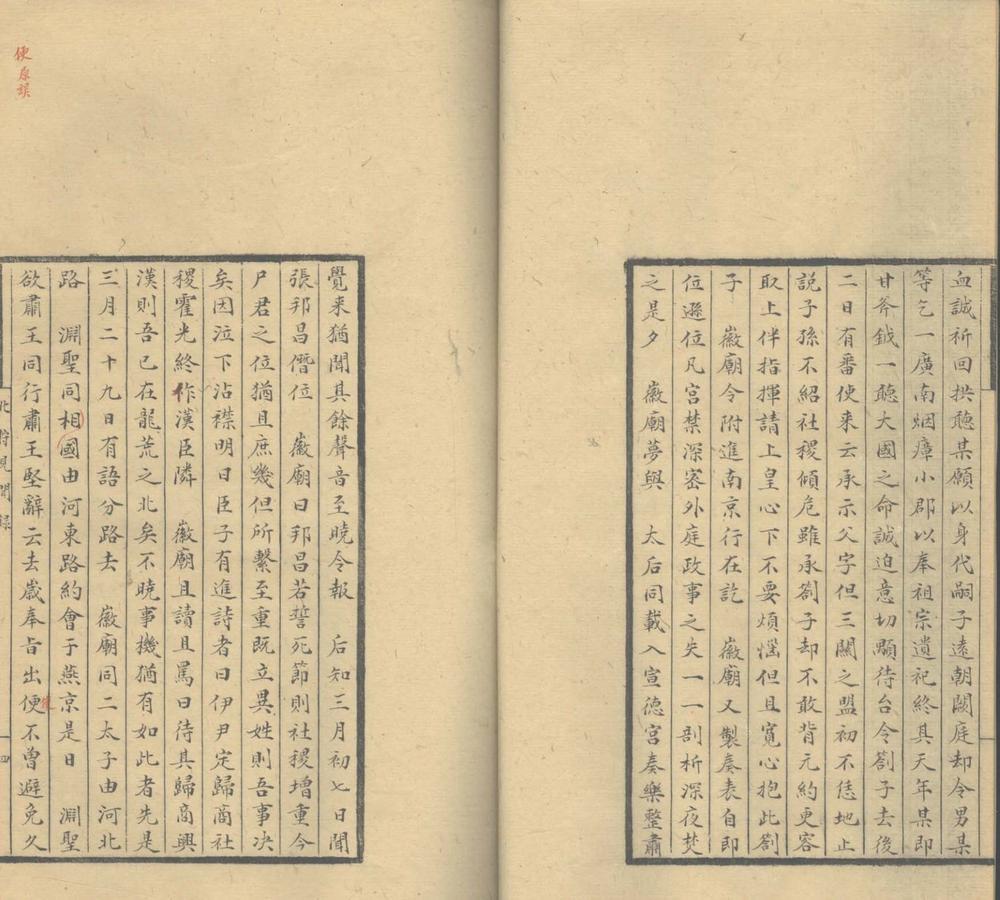 血誠祈回拱聽某願以身代嗣子遠朝闕庭却令男某
等乞一廣南烟瘴小郡以奉祖宗遺祀終其天年某即
甘斧鉞一聽大國之命誠迫意切顒待台令劄子去後
二日有番使来云承示父字但三關之盟初不恁地止
說子孫不紹社稷傾危雖承劄子却不敢背元約更容
取上伴指揮請上皇心下不要煩惱但且寬心抱此劄
子　徽廟令附進南京行在訖　徽廟又製奏表自即
位遜位凡宮禁深密外庭政事之失一一剖析深夜焚
之是夕　徽廟夢與　太后同載入宣德宮奏樂整肅
覺来猶聞其餘聲音至曉令報　后知三月初七日聞
張邦昌僭位　徽廟曰邦昌若誓死節則社稷增重今
尸君之位猶且庶幾但所繫至重既立異姓則吾事决
矣因泣下沾襟明日臣子有進詩者曰伊尹定歸商社
稷霍光終作漢臣隣　徽廟且讀且罵曰待其歸商興
漢則吾已在龍荒之北矣不曉事機猶有如此者先是
三月二十九日有語分路去　徽廟同二太子由河北
路　淵聖同相國由河東路約會于燕京是日　淵聖
欲肅王同行肅王堅辭云去歲奉旨出便不曾避免久
使原誤
北狩見聞錄
四